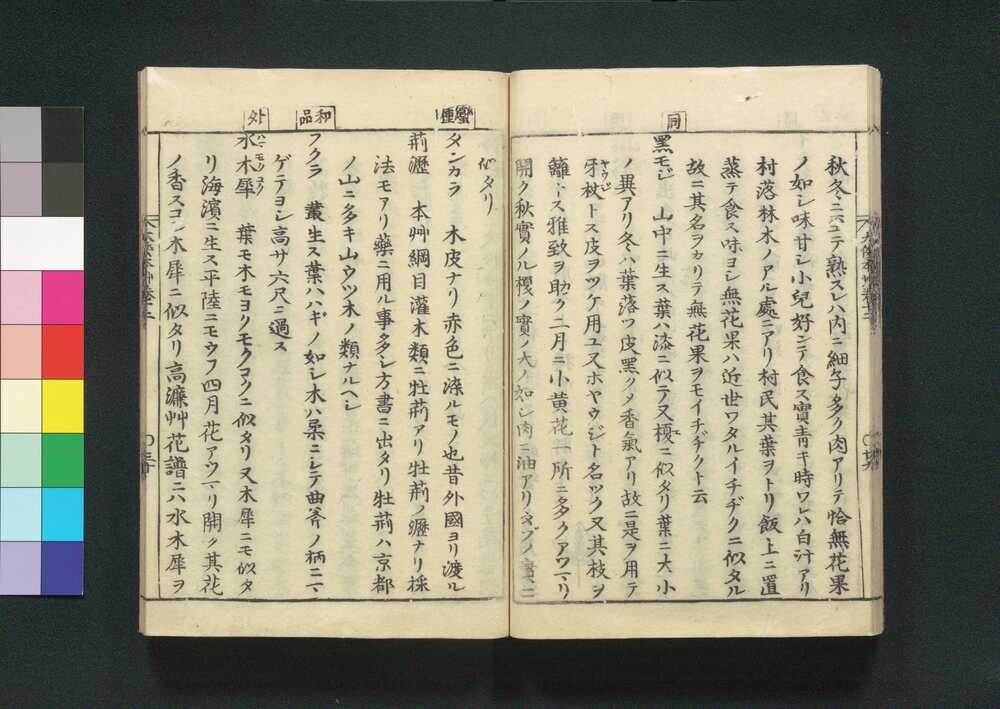 秋冬ニ至テ熟スレハ内ニ細子多ク肉アリテ恰無花果
ノ如シ味甘シ小兒好ンテ食ス實青キ時ワレハ白汁アリ
村落林木ノアル處ニアリ村民其葉ヲトリ飯上ニ置
蒸テ食ス味ヨシ無花果ハ近世ワタルイチヂクニ似タル
故ニ其名ヲカリテ無花果ヲモイチヂクト云
同
黑モジ 山中ニ生ス葉ハ漆ニ似テ又榎ニ似タリ葉ニ大小
ノ異アリ冬ハ葉落ツ皮黑クメ香氣アリ故ニ是ヲ用テ
牙杖トス皮ヲツケ用ユ又ホヤウジト名ツク又其枝ヲ
ヤウジ
籬トス雅致ヲ助ク二月ニ小黄花一所ニ多クアツマリ
開ク秋實ノル櫻ノ實ノ大ノ如シ肉ニ油アリタブノ實ニ
似タリ
蠻種
タンカラ 木皮ナリ赤色ニ染ルモノ也昔外國ヨリ渡ル
荊瀝 本艸綱目灌木類ニ牡荊アリ牡荊ノ瀝ナリ採
法モアリ藥ニ用ル事多シ方書ニ出タリ牡荊ハ京都
ノ山ニ多キ山ウツ木ノ類ナルヘシ
和品
フクラ 叢生ス葉ハハギノ如シ木ハ柔ニシテ曲斧ノ柄ニマ
ゲテヨシ高サ六尺ニ過ス
外
水木犀 葉モ木モヨクモクコクニ似タリ又木犀ニモ似タ
ハマモツコク
リ海濱ニ生ス平陸ニモウフ四月花アツマリ開ク其花
ノ香スコシ木犀ニ似タリ高濂艸花譜ニ六水木犀ヲ